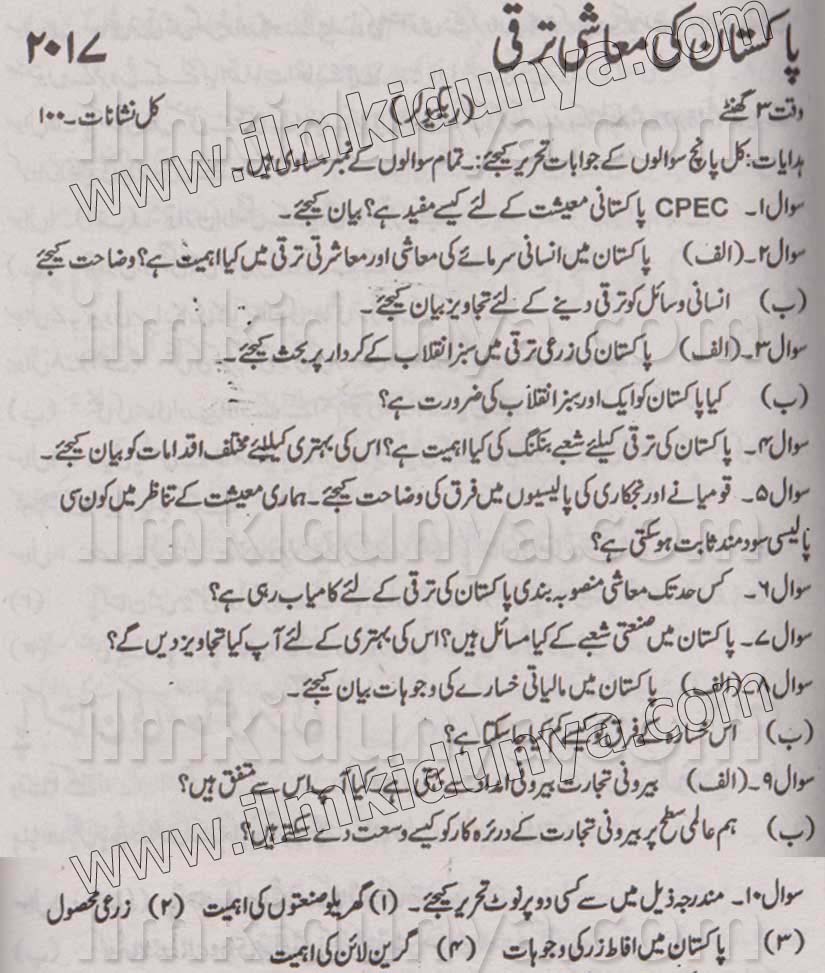 پاکستان کی معاشی ترقی ۲۰۱۷
وقت ۳ گھنٹے (ریگولر) کل نشانات۔۱۰۰
ہدایات: کل پانچ سوالوں کے جوابات تحریر کیجئے:۔ تمام سوالوں کے نمبر مساوی ہیں۔
سوال ۱۔ CPEC پاکستانی معیشت کے لئے کیسے مفید ہے؟ بیان کیجئے۔
سوال ۲۔(الف) پاکستان میں انسانی سرمائے کی معاشی اور معاشرتی ترقی میں کیا اہمیت ہے؟ وضاحت کیجئے
(ب) انسانی وسائل کو ترقی دینے کے لئے تجاویز بیان کیجئے۔
سوال ۳۔(الف) پاکستان کی زرعی ترقی میں سبز انقلاب کے کردار پر بحث کیجئے۔
(ب) کیا پاکستان کو ایک اور سبز انقلاب کی ضرورت ہے؟
سوال ۴۔ پاکستان کی ترقی کیلئے شعبے بنکنگ کی کیا اہمیت ہے؟ اس کی بہتری کیلئے مختلف اقدامات کو بیان کیجئے۔
سوال ۵۔ قومیانے اور نجکاری کی پالیسیوں میں فرق کی وضاحت کیجئے۔ ہماری معیشت کے تناظر میں کون سی
پالیسی سودمند ثابت ہوسکتی ہے؟
سوال ۶۔ کس حد تک معاشی منصوبہ بندی پاکستان کی ترقی کے لئے کامیاب رہی ہے؟
سوال ۷۔ پاکستان میں صنعتی شعبے کے کیا مسائل ہیں؟ اس کی بہتری کے لئے آپ کیا تجاویز دیں گے؟
سوال ۸۔(الف) پاکستان میں مالیاتی خسارے کی وجوہات بیان کیجئے۔
(ب) اس خسارہ کے فرق کو کیسے کم کیا جاسکتا ہے؟
سوال ۹۔(الف) بیرونی تجارت بیرونی امداد سے ہے۔ کیا آپ اس سے متفق ہیں؟
(ب) ہم عالمی سطح پر بیرونی تجارت کے دائرہ کار کو کیسے وسعت دے سکتے ہیں؟
سوال ۱۰۔ مندرجہ ذیل میں سے کسی دو پر نوٹ تحریر کیجئے۔ (۱) گھریلو صنعتوں کی اہمیت (۲) زرعی محصول
(۳) پاکستان میں افاط زر کی وجوہات (۴) گرین لائن کی اہمیت
www.ilmkidunya.com
www.ilmkidunya.com
ilmkidunya.com
ilmkidunya.com
ilmkidunya.com
ilmkidunya.com
ilmkidunya.com